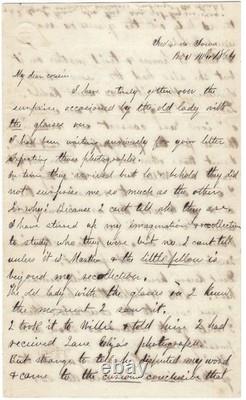 My dear cousin
I have entirely gotten over the
surprise occasioned by the old lady with
the glasses on.
I had been waiting anxiously for your letter
expecting those photographs.
in time they arrived but lo & behold they did
not surprise me so much as the other.
& why? Because I cant tell who they are.
I have stired up my imagination & recollection
to study who they were but no I cant tell
unless & the little fellow is
beyond my recollection.
The old lady with the glasses on I knew
the moment I saw it.
I took it to Willie & told him I had
received photograph.
But strange to tell he disputed my word
& came to the curious conclusion that